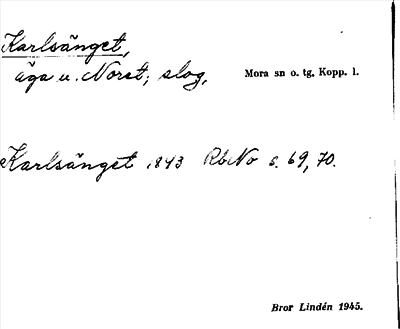 Karlsänget,
äga u. Noret; slog,
Mora sn o. tg, Kopp. l.
Karlsänget 1843 RbNo s. 69, 70.
Bror Lindén 1945.